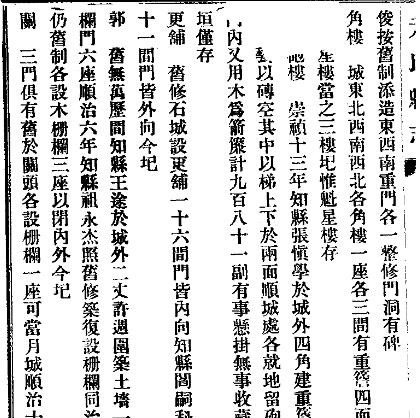 俊按舊制添造東西南重門各一整修門洞有碑
角樓　城東北西南西北各角樓一座各三間有重簷四面
星樓當之三樓圯惟魁星樓存
樓　崇禎十三年知縣張愼學於城外四角建重簷
以磚空其中以梯上下於兩面順城處各就地留砲
內又用木爲箭簾計九百八十一副有事懸掛無事收藏
垣僅存
更舖　舊修石城設更舖一十六間門皆內向知縣閻嗣科
十一間門皆外向今圯
郭　舊無萬歷間知縣王途於城外二丈許週圍築土墻一
欄門六座順治六年知縣祖永杰照舊修築復設栅欄同治
仍舊制各設木栅欄三座以閉內外今圯
關　三門俱有舊於關頭各設栅欄一座可當月城順治十